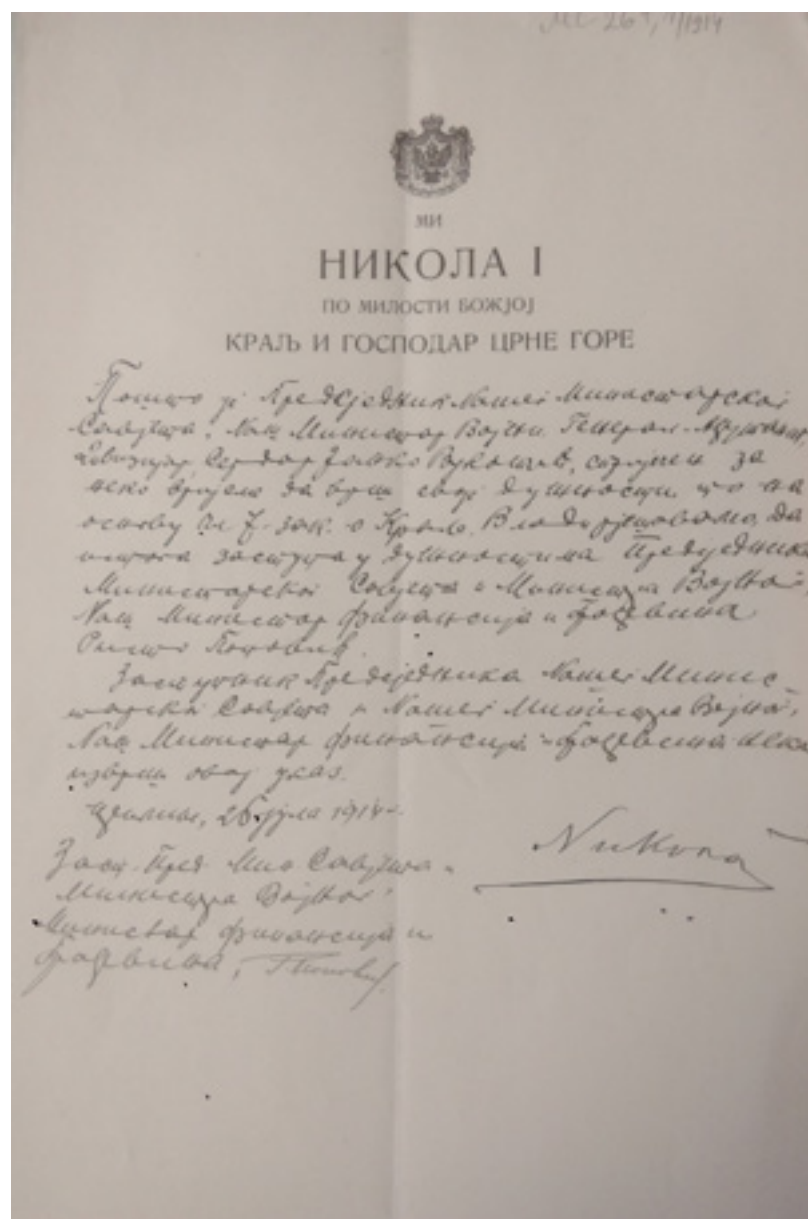 МИ
НИКОЛА I
ПО МИЛОСТИ БОЖЈОЈ
КРАЉ И ГОСПОДАР ЦРНЕ ГОРЕ
Пошто је Предсједник Нашег Министарског
Савјета и Наш Министар Војни, Генерал-Ађутант,
Дивизијар, Сердар Јанко Вукотић, спријечен за
неко вријеме да врши своје дужности то на
основу чл 7. зак. о Краљ. Влади
заступа у дужностима Предсједника
Министарског Савјета и Министра Војног,
Наш Министар финансија и грађевина
Ристо Поповић.
Заступник Предсједника Нашег Минис
тарског Савјета и Нашег Министра Војног,
Наш Министар финансија и грађевина нека
изврши овај указ.
Цетиње, 26 јула 1914 г.
Никола
Заст. Пред. Мин Савјета и
Министра Војног
Министар финансија и
грађевина, Р Поповић